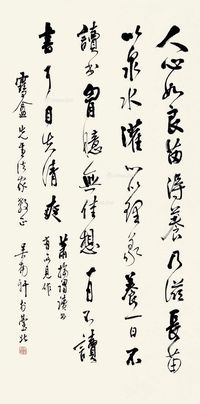 人心如良苗得養乃滋長苗
以泉水灌心以理義養一日不
讀書胸臆無佳想一月不讀
書耳目失清爽
蕭掄謂讀書
有所見作
先生法家教正
吳南軒書於臺北